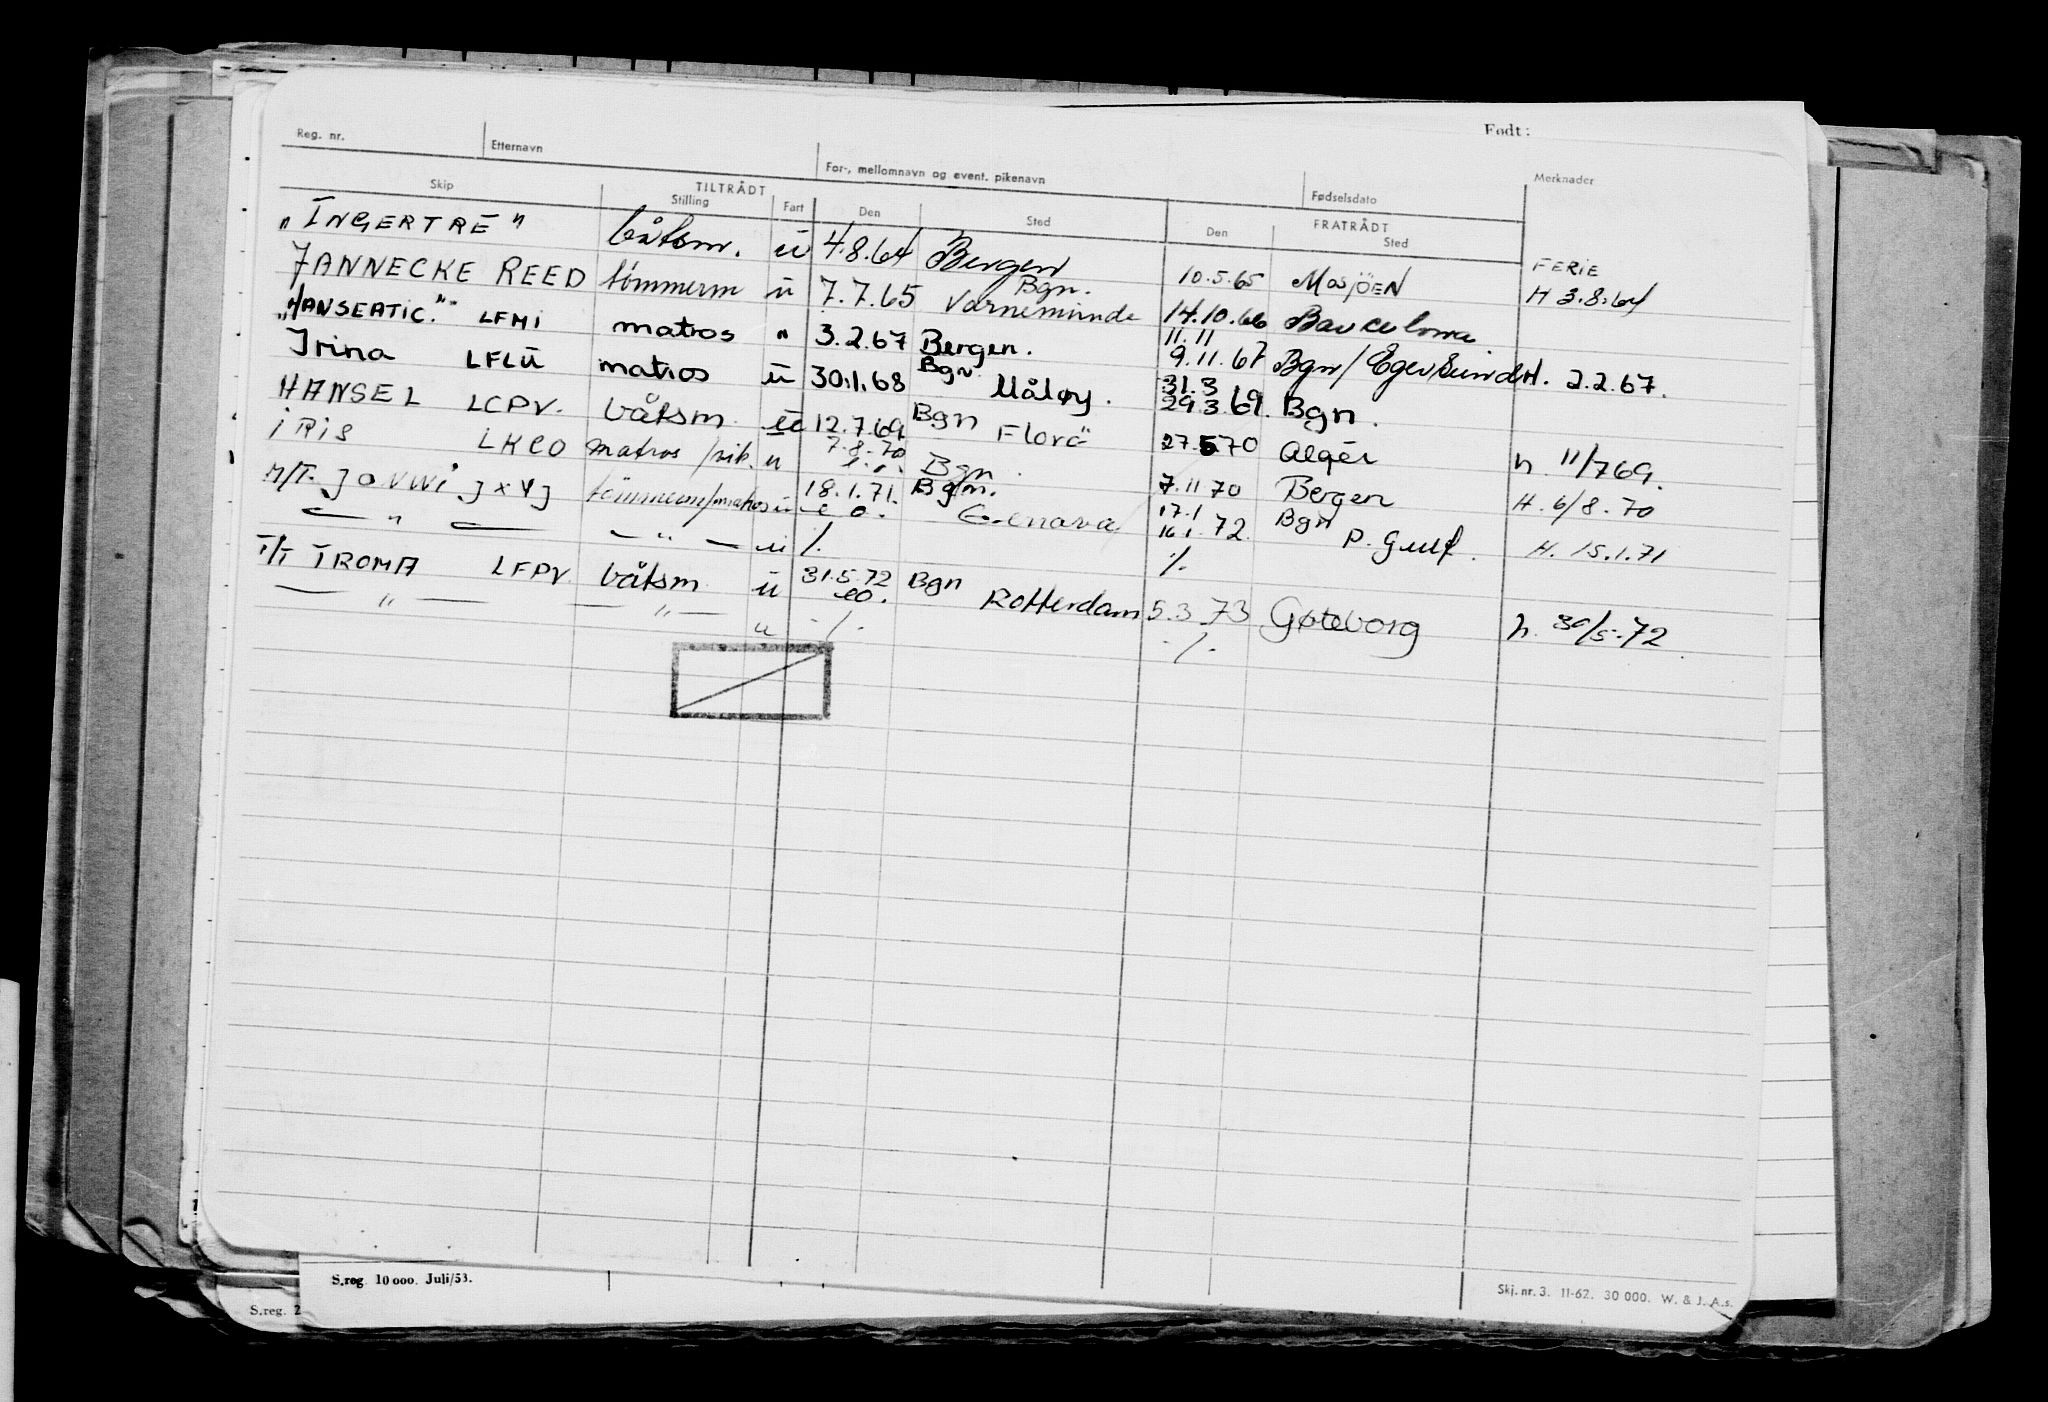 Født:
Reg. nr. Etternavn For-, mellomnavn og event. pikenavn Fødselsdato Merknader
TILTRÅDT FRATRÅDT
Skip Stilling Fart Den Sted Den Sted
"INGERTRE" båtsm. ü 4.8.64 Bergen 10.5.65 MOSJÖEN FERIE H 3.8.64
JANNECKE REED tömmerm ü 7.7.65 Bgn. Varnemünde 14.10.66 Barcelona
"HANSEATIC." LFMI matros " 3.2.67 Bergen. 11.11 9.11.67 Bgn/Egersund H. 2.2.67.
Irina LFLÜ matros ü 30.1.68 Bgn Måløy. 31.3 29.3.69. Bgn.
HANSEL LCPV. båtsm ü 12.7.69 Bgn Florö 27.5 70 Algér h. 11/7 69.
IRIS LKCO matros ü 7.8.70 Bgn. 7.11 70 Bergen H. 6/8.70
M/T. JANWI JXYJ tömmerm/matros ü 18.1.71. Bgn. 17.1 16.1.72. Bgn P. Gulf. H. 15.1.71
— " — — " — ü ·/. ·/.
T/T TROMA LFPV båtsm ü 31.5.72 Bgn Rotterdam 5.3.73 Gøteborg h. 30/5.72
— " — — " — ü ·/. ·/.
S.reg. 10 000. Juli/53.
Skj. nr. 3. 11-62. 30 000. W. & J. A.s.
S.reg. 2